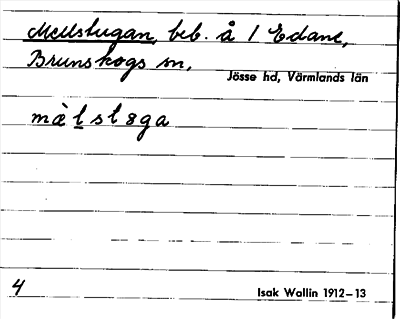 Mellstugan, beb. å 1 Edane,
Brunskogs sn,
Jösse hd, Värmlands län
màlstuga
4
Isak Wallin 1912–13